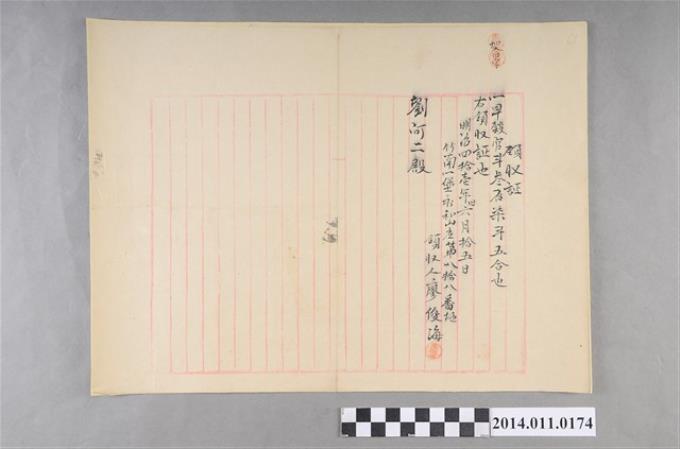 領收証
一早穀官斗叁石柒斗五合也
右領收証也
明治四拾壹年六月拾五日
竹南一堡永和山庄第八拾八番地
領收人廖俊海
劉阿二殿
2014.011.0174